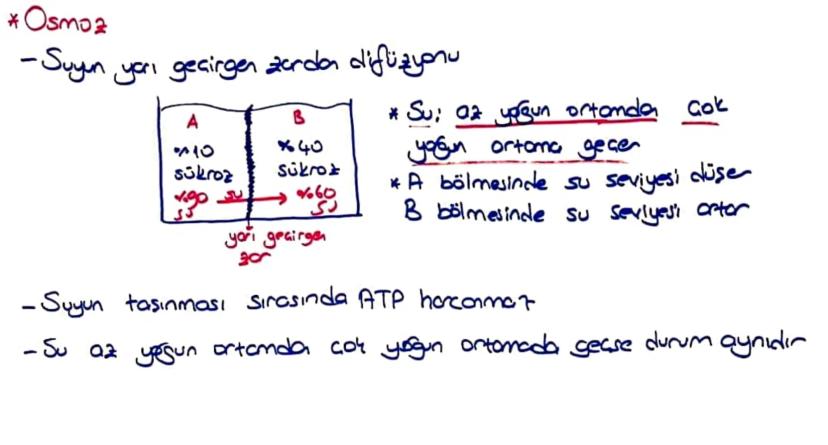 * Osmoz
- Suyun yarı geçirgen zardan difüzyonu
A
%10
sükroz
%90 su
su
B
%40
sükroz
%60
su
yarı geçirgen
zar
* Su; az yoğun ortamdan çok
yoğun ortama geçer
* A bölmesinde su seviyesi düşer
B bölmesinde su seviyesi artar
- Suyun taşınması sırasında ATP harcanmaz
- Su az yoğun ortamdan çok yoğun ortamada geçse durum aynıdır